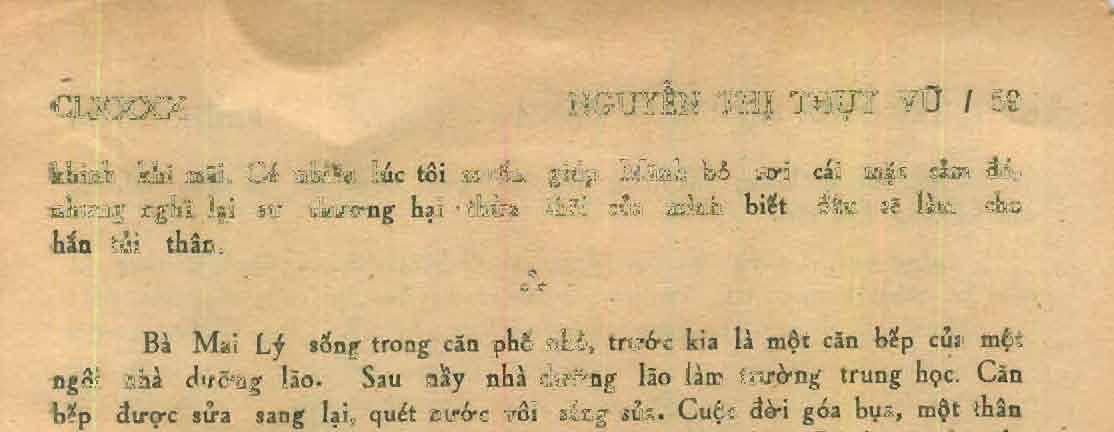 CLXXXX NGUYỄN THỊ THỤY VŨ / 59
khinh khi mãi. Có nhiều lúc tôi muốn giúp Minh bỏ rơi cái mặc cảm đó,
nhưng nghĩ lại sự thương hại thừa thãi của mình biết đâu sẽ làm cho
hắn tủi thân.
Bà Mai Lý sống trong căn phố nhỏ, trước kia là một căn bếp của một
ngôi nhà dưỡng lão. Sau nầy nhà dưỡng lão làm trường trung học. Căn
bếp được sửa sang lại, quét nước vôi sáng sủa. Cuộc đời góa bụa, một thân